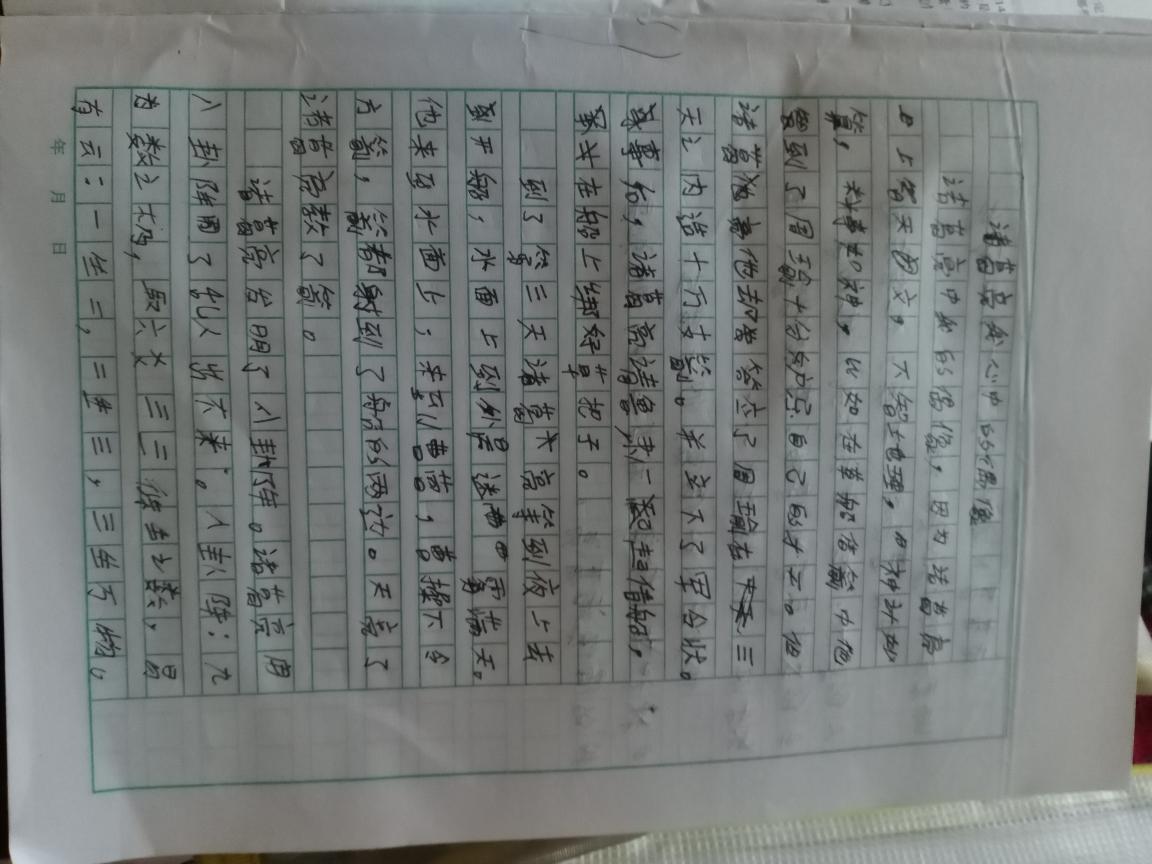 诸葛亮我心中的偶像
诸葛亮中我的偶像，因为诸葛亮
上智天文，下智地理。神计妙
算，料事如神，比如在草船借箭中他
到了周瑜十分妒忌自己的才。但
诸葛亮他却答应了周瑜在三
天之内造十万支箭。并立下了军令状。
事后，诸葛亮请鲁肃一起借船，
并在船上绑好草把子。
到了第三天诸葛亮等到夜上去
开船，水面上到外是迷雾满天。
他来到水面上；来引曹营，曹操下令
方箭，箭都射到了船的两边。天亮了
诸葛亮数了箭。
诸葛亮发明了八卦阵。诸葛亮用
八卦阵困了乱人出不来。八卦阵：九
为数之大乃，取六爻三三衍生之数，易
有云：一生二，二生三，三生万物，
年 月 日